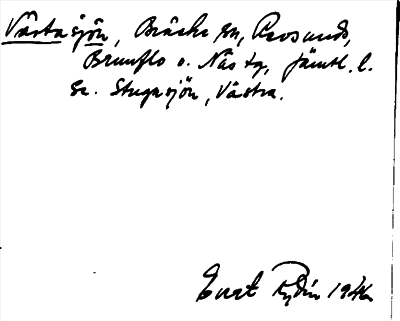 Västasjön, Bräcke sn, Revsunds,
Brunflo o. Näs tg, Jämtl. l.
Se. Stugusjön, Västra.
Curt Rydin 1946